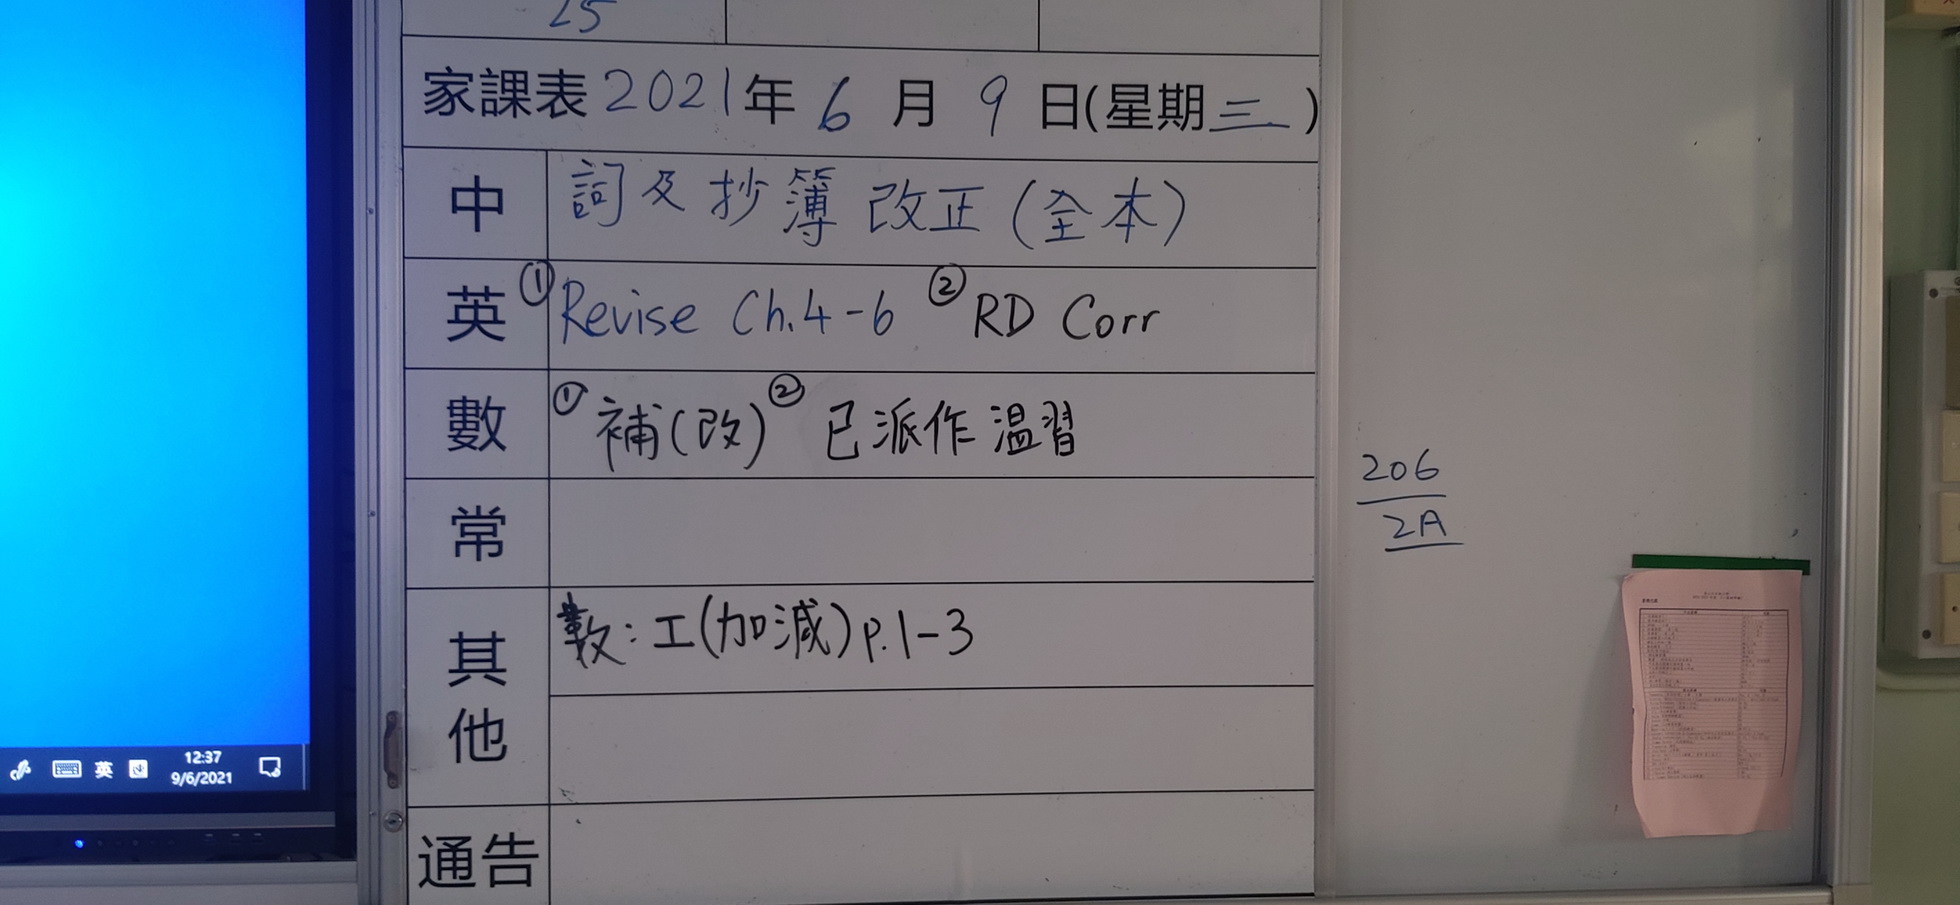 25
家課表2021年6月9日(星期三)
中 詞及抄簿改正(全本)
英 ①Revise Ch.4-6 ②RD Corr
數 ①補(改)②已派作温習
常
其他 數:工(加減)p.1-3
通告
206
2A
英
12:37
9/6/2021